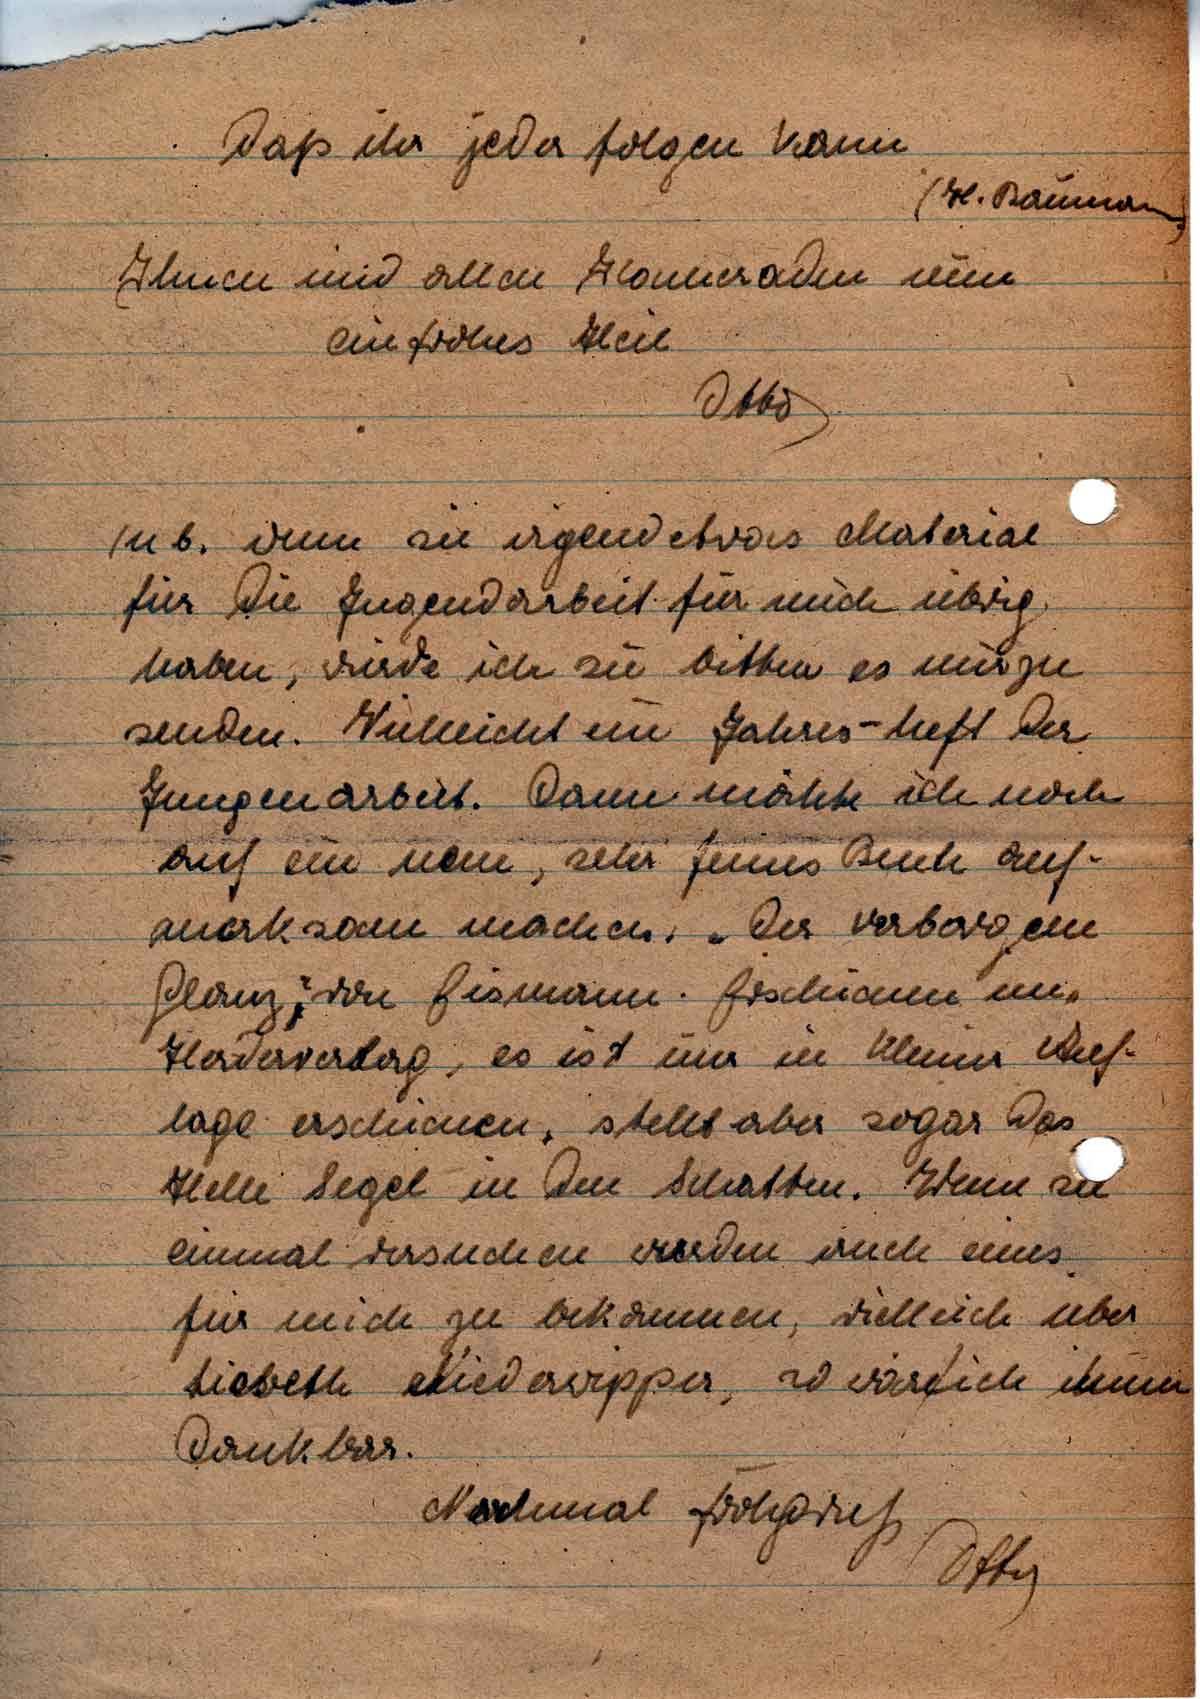 Daß ihr jeder folgen kann
(H. Baumann)
Ihnen und allen Kameraden nun
ein frohes Heil
Otto
(n b. wenn sie irgendetwas Material
für die Jugendarbeit für mich übrig
haben, würde ich sie bitten es mir zu
senden. Vielleicht ein Jahres-heft der
Jungenarbeit. Dann möchte ich noch
auf ein neues, sehr feines Buch auf-
merksam machen. „Der verborgene
Glanz" von Eismann. Erschienen im
Herderverlag, es ist nur in kleiner Auf-
lage erschienen, stellt aber sogar das
Helle Segel in den Schatten. Wenn sie
einmal versuchen würden auch eines
für mich zu bekommen, vielleich über
Liesbeth Niederwipper, so wär ich ihnen
Dankbar.
Nochmal
Otto